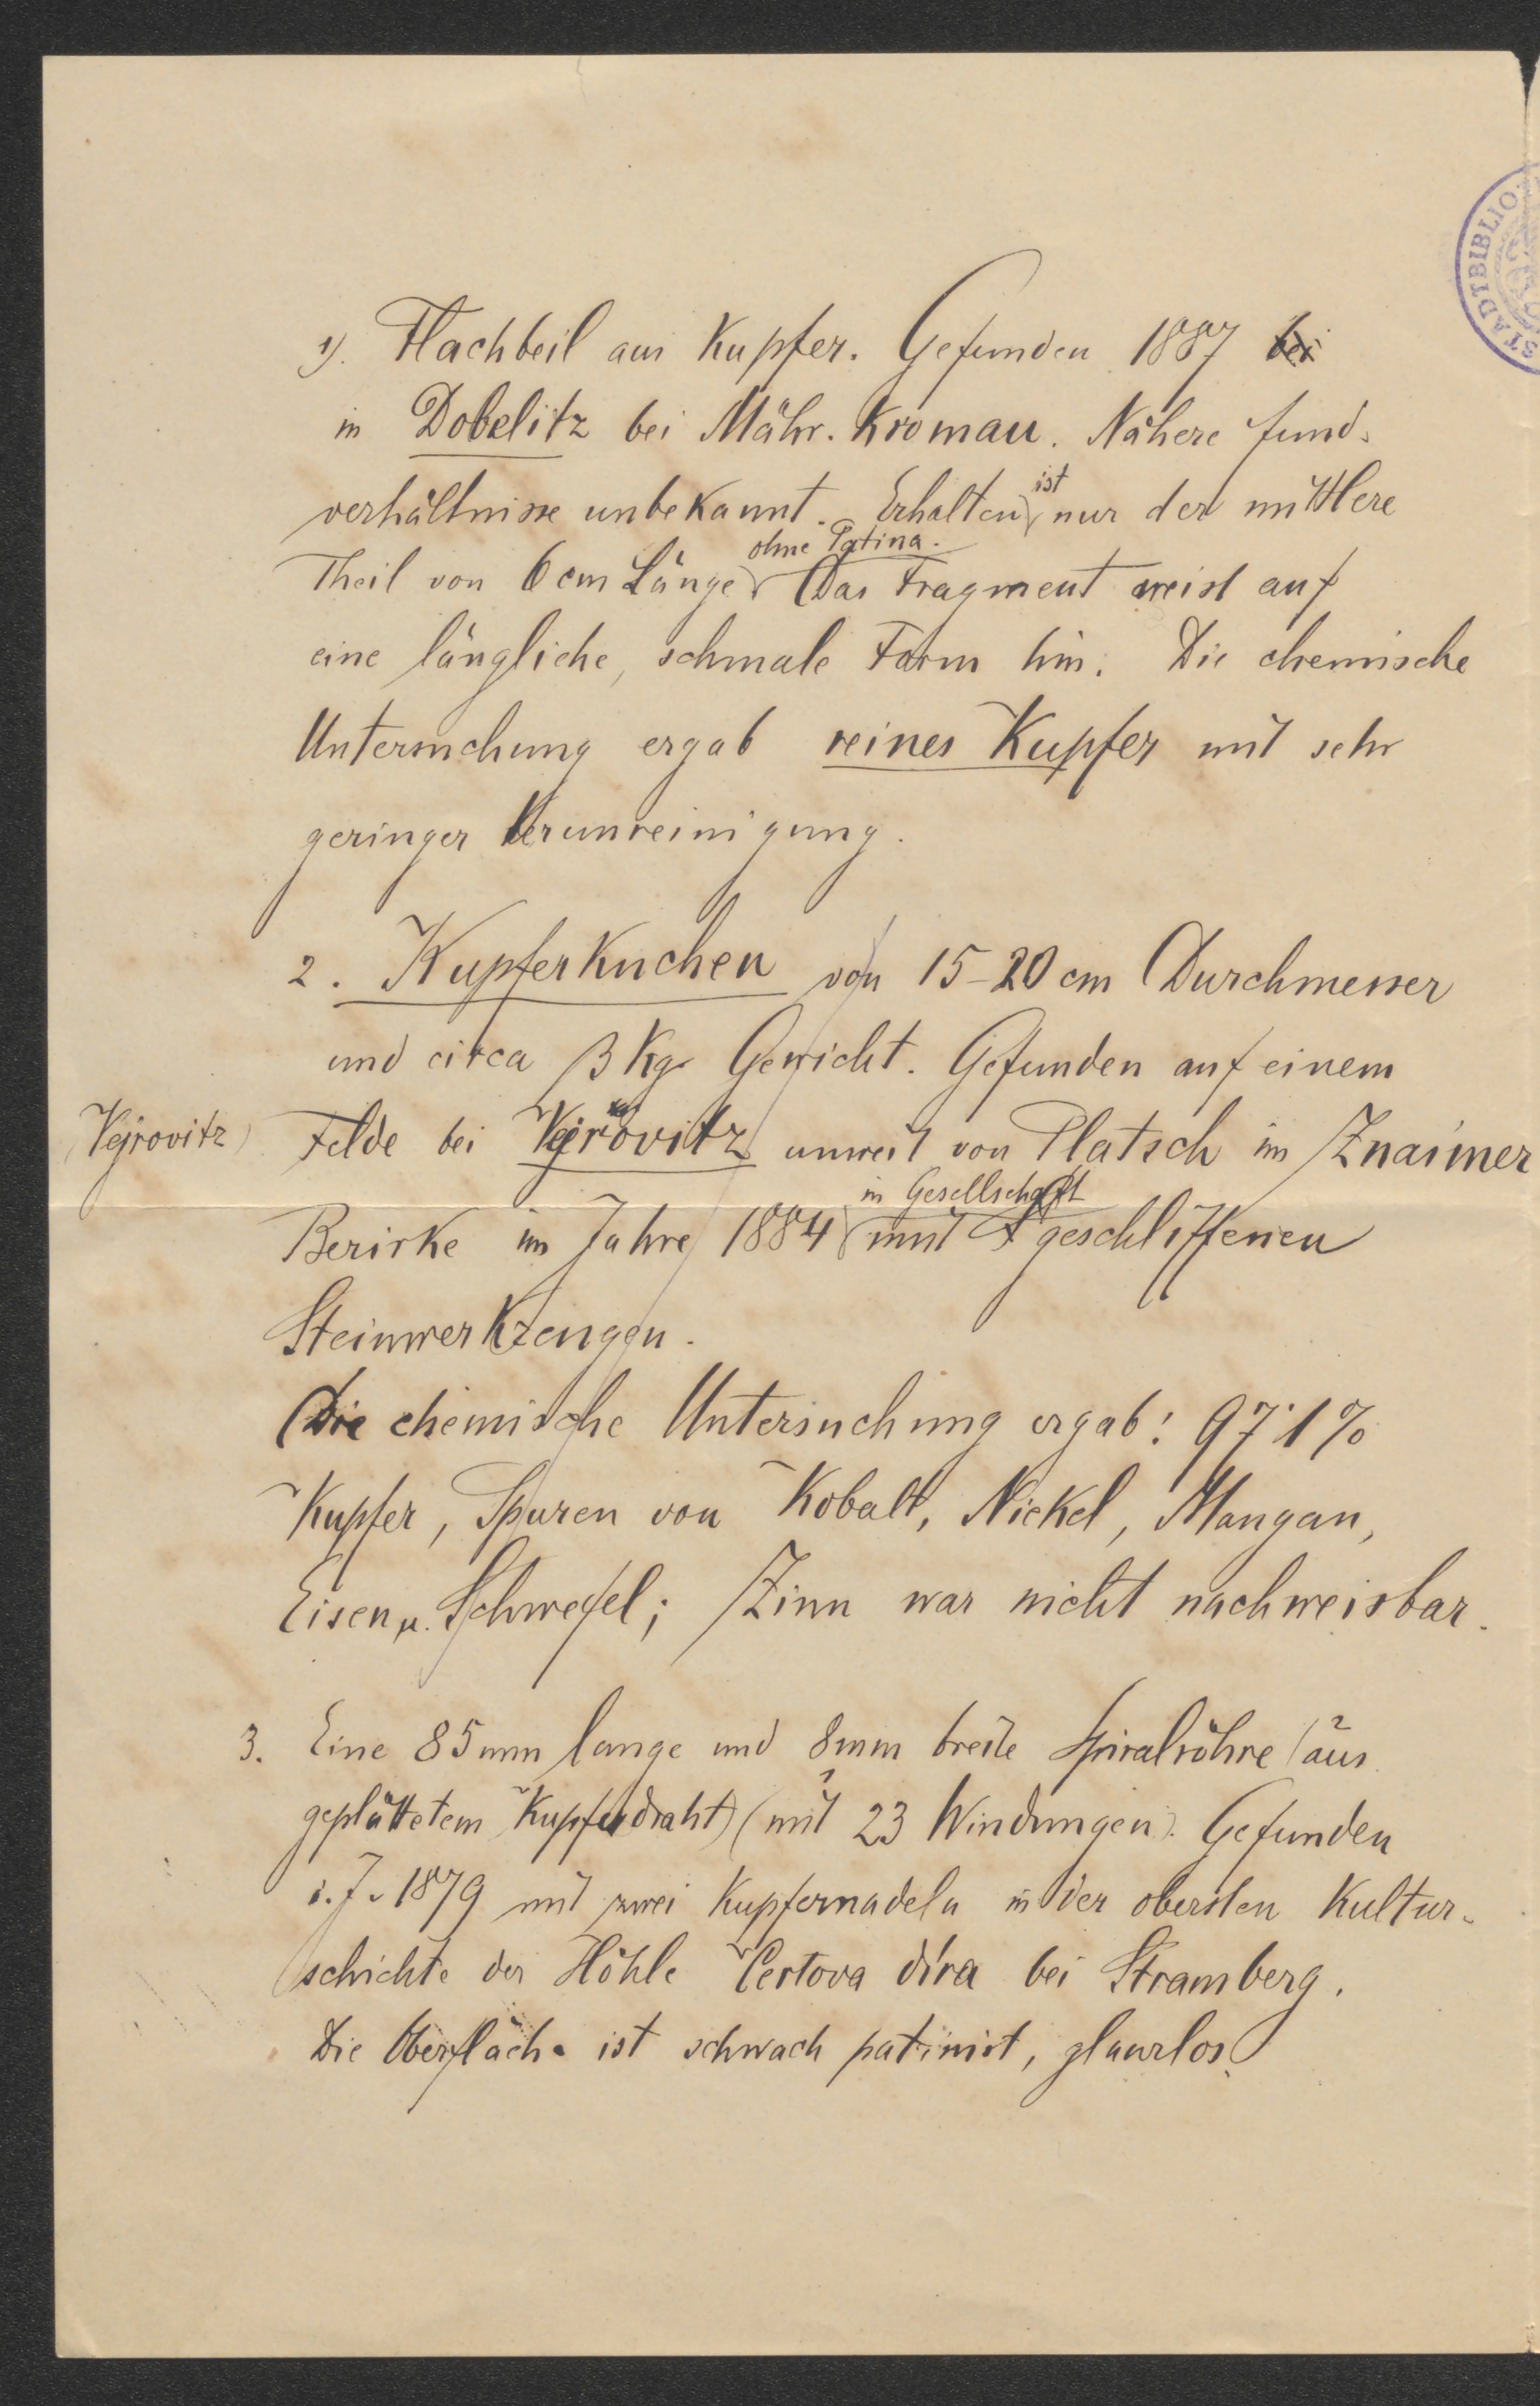 STADTBIBLIO
1). Flachbeil aus Kupfer. Gefunden 1887 bei
in Dobelitz bei Mähr. Kromau. Nähere Fund-
verhältnisse unbekannt. Erhalten ist nur der mittlere
Theil von 6 cm Länge ohne Patina. Das Fragment weist auf
eine längliche, schmale Form hin. Die chemische
Untersuchung ergab reines Kupfer mit sehr
geringer Verunreinigung.
2. Kupferkuchen von 15-20 cm Durchmesser
und circa 3 Kg. Gewicht. Gefunden auf einem
Vejrovitz) Felde bei Vejrovitz unweit von Platsch im Znaimer
Bezirke im Jahre 1884 in Gesellschaft mit geschliffenen
Steinwerkzeugen.
Die chemische Untersuchung ergab: 97·1%
Kupfer, Spuren von Kobalt, Nickel, Mangan,
Eisen u. Schwefel; Zinn war nicht nachweisbar.
3. Eine 85 mm lange und 8 mm breite Spiralröhre (aus
geplättetem Kupferdraht) (mit 23 Windungen). Gefunden
i. J. 1879 mit zwei Kupfernadeln in der obersten Kultur-
schichte der Höhle Čertova díra bei Stramberg.
Die Oberfläche ist schwach patinirt, glanzlos.